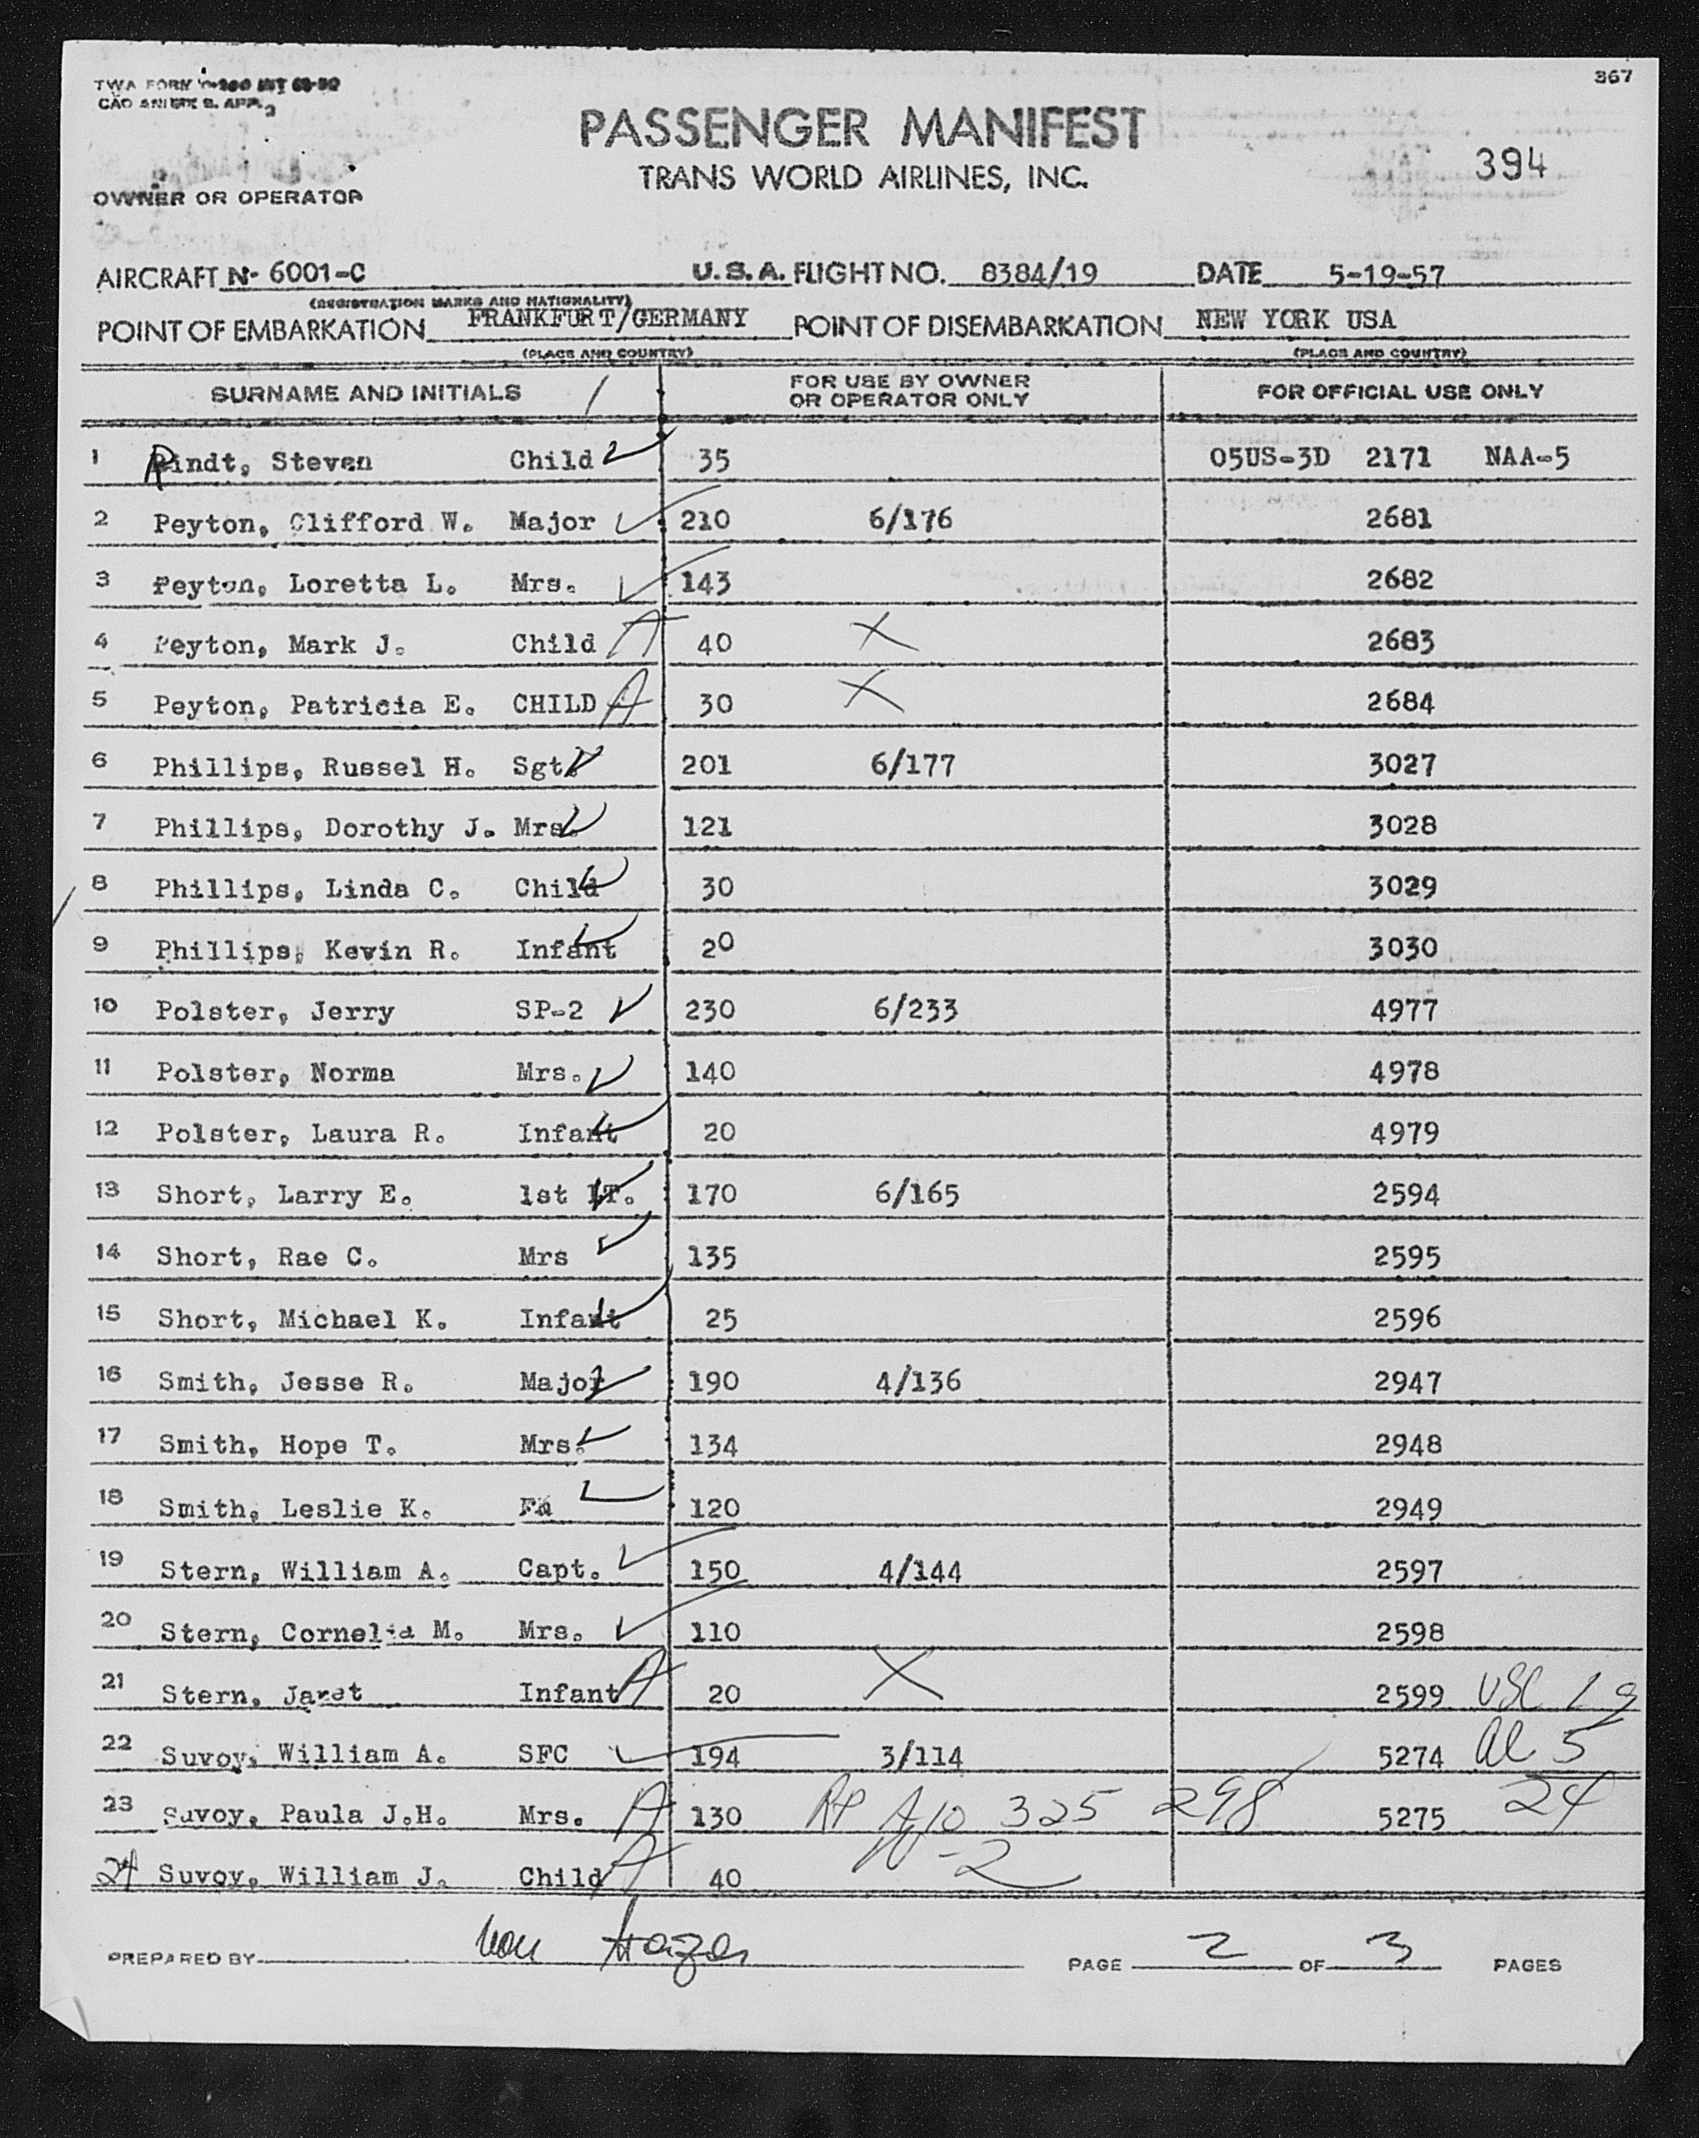 367
TWA FORM
CAO ANNEX 9. APP. 2
PASSENGER MANIFEST
394
TRANS WORLD AIRLINES, INC.
OWNER OR OPERATOR
AIRCRAFT N- 6001-C U.S.A. FLIGHT NO. 8384/19 DATE 5-19-57
(REGISTRATION MARKS AND NATIONALITY)
POINT OF EMBARKATION FRANKFURT/GERMANY POINT OF DISEMBARKATION NEW YORK USA
(PLACE AND COUNTRY) (PLACE AND COUNTRY)
SURNAME AND INITIALS FOR USE BY OWNER OR OPERATOR ONLY FOR OFFICIAL USE ONLY
1 Rindt, Steven Child 35 05US-3D 2171 NAA-5
2 Peyton, Clifford W. Major 210 6/176 2681
3 Peyton, Loretta L. Mrs. 143 2682
4 Peyton, Mark J. Child A 40 X 2683
5 Peyton, Patricia E. CHILD A 30 X 2684
6 Phillips, Russel H. Sgt. 201 6/177 3027
7 Phillips, Dorothy J. Mrs. 121 3028
8 Phillips, Linda C. Child 30 3029
9 Phillips, Kevin R. Infant 20 3030
10 Polster, Jerry SP-2 230 6/233 4977
11 Polster, Norma Mrs. 140 4978
12 Polster, Laura R. Infant 20 4979
13 Short, Larry E. 1st LT. 170 6/165 2594
14 Short, Rae C. Mrs 135 2595
15 Short, Michael K. Infant 25 2596
16 Smith, Jesse R. Major 190 4/136 2947
17 Smith, Hope T. Mrs. 134 2948
18 Smith, Leslie K. 120 2949
19 Stern, William A. Capt. 150 4/144 2597
20 Stern, Cornelia M. Mrs. 110 2598
21 Stern, Janet Infant A 20 X 2599 USC 19
22 Suvoy, William A. SFC 194 3/114 5274 al 5
23 Suvoy, Paula J.H. Mrs. A 130 325 298 5275 24
24 Suvoy, William J. Child A 40 -2
PREPARED BY von PAGE 2 OF 3 PAGES